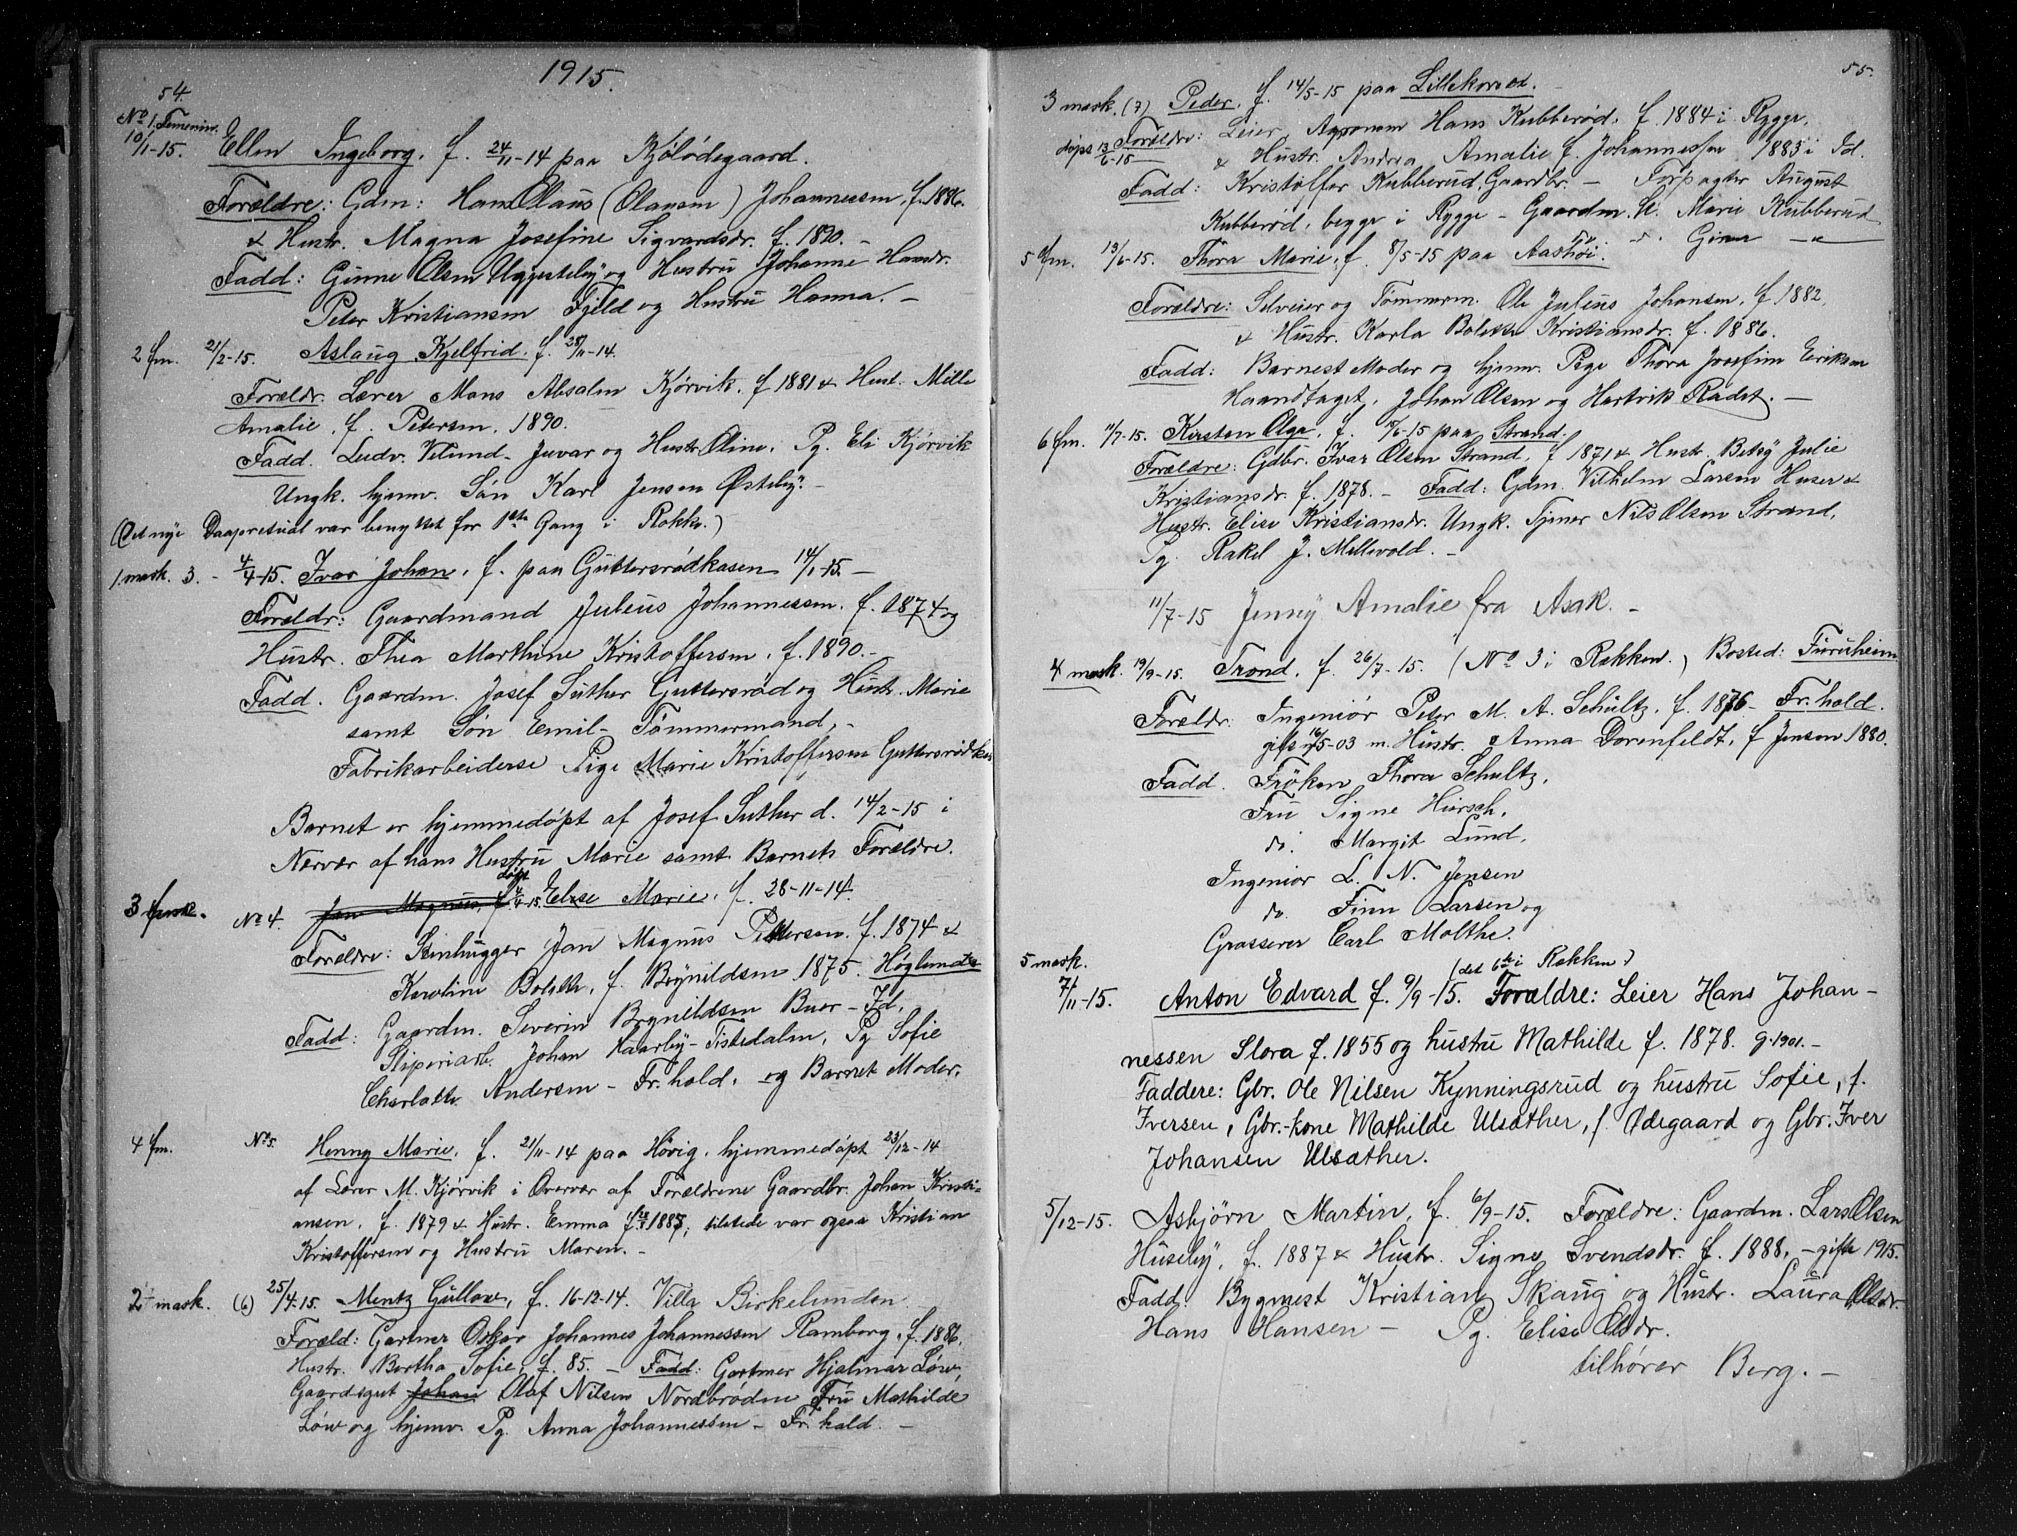 54.
1915.
No 1. Feminin.
10/1-15. Ellen Ingeborg, f. 24/11-14 paa Kjölödegaard.
Forældre: Gdm: Hans Olaus (Olausen) Johannessen, f. 1886.
& Hustr. Magna Josefine Sigvardsdr. f. 1890. –
Fadd: Gunne Olsen Uggesteby og Hustru Johanne Hansdr.
Peter Kristiansen Fjeld og Hustru Hanna. –
2 fm. 21/2-15. Aslaug Kjelfrid. f. 28/11-14.
Foreldr. Lærer Mons Absalon Kjørvik. f 1881 & Hust. Milli
Amalie, f. Petersen, 1890.
Fadd. Ludv. Velund – Juvar og Hustr. Oline. Pg. Eli Kjørvik
Ungk. hjemv. Søn Karl Jensen Østeby. –
(Det nye Daapsritual var benyttet for 1ste Gang i Rokke.)
1. mask. 3. – 4/4-15. Ivar Johan, f. paa Guttersrødkasen 14/1-15. –
Foreldr: Gaardmand Julius Johannessen. f. 1874 og
Hustr. Thea Marthine Kristoffersen, f. 1890. –
Fadd. Gaardm. Josef Suther Guttersrød og Hustr. Marie
samt Søn Emil – Tömmermand, –
Fabrikarbeiderse Pige Marie Kristoffersen Guttersrødkas
Barnet er hjemmedöpt af Josef Suther d. 14/2-15 i
Nærvær af hans Hustru Marie samt Barnets Forældre.
3 fm. No 4. Jan Magnus, f. döpt 4/4-15. Else Marie, f. 28-11-14.
Forældre: Stenhugger Jan Magnus Pettersen. f. 1874 &
Karoline Bolette, f. Brynildsen 1875. Høglund
Fadd: Gaardm. Severin Brynildsen Buer – Id,
Sliperiarb. Johan Haarby – Tistedalen, Pg Sofie
Charlotte Andersen – Fr. hald. og Barnets Moder.
4 fm. No 5. Henny Marie, f. 21/11-14 paa Høvig, hjemmedöpt 23/12-14
af Lærer M. Kjørvik i Overvær af Forældrene Gaardbr. Johan Kristi-
ansen, f. 1879 & Hustr. Emma f. 1887, tilstede var ogsaa Kristian
Kristoffersen og Hustru Maren. –
2 mask. (6) 25/4-15. Mentz Gullow, f. 16-12-14. Villa Birkelunden
Foreld: Gartner Oskar Johannes Johannessen Ramberg, f. 1886,
Hustr. Bertha Sofie, f. 85. – Fadd: Gartner Hjalmar Löw,
Gaardsgut Johan Olaf Nilsen Nordbrøden Fru Mathilde
Löw og hjemv. Pg. Anna Johannessen – Fr. hald. –
55.
3 mask. (7) Peder, f. 14/5-15 paa Lillekorød.
döpt 13/6-15 Foreldr: Leier, Agronom Hans Kubberød, f. 1884 i Rygge,
& Hustr. Andrea Amalie f. Johannessen 1885 i Id.
Fadd: Kristoffer Kubberud, Gaardbr. – Forpagter August
Kubberød, begge i Rygge – Gaardm. H. Marie Kubberud
do. do. Gina –"–
5 fm. 13/6-15. Thora Marie, f. 8/5-15 paa Aashöi.
Forældre: Selveier og Tömmerm. Ole Julius Johansen, f 1882,
& Hustr. Karla Bolette Kristiansdr. f. 1886.
Fadd: Barnest Moder og hjemv. Pige Thora Josefine Eriksen
Haandtaget, Johan Olsen og Hartvik Rødet. –
6 fm. 11/7-15. Kirsten Olga, f. /6-15 paa Strand.
Forældre: Gdbr. Ivar Olsen Strand, f 1871 & Hustr. Betsy Julie
Kristiansdr. f. 1878. – Fadd: Gdm. Vilhelm Larsen Huser &
Hustr. Elise Kristiansdr. Ungk. Tjener Nils Olsen Strand,
Pg. Rakel J. Millevold. –
11/7-15 Jenny Amalie fra Asak. –
4 mask. 19/9-15. Trond, f. 26/7-15. (No 3 i Rækken.) Bosted: Furuheim
Foreldr: Ingeniör Peter M. A. Schultz, f. 1876 – Fr. hald.
gift 16/5-03 m. Hustr. Anna Dorenfeldt, f Jensen 1880.
Fadd. Fröken Thora Schultz,
Fru Signe Hirsch,
do. Margit Lund,
Ingeniör L. N. Jensen
do. Finn Larsen og
Grosserer Carl Molthe.
5 mask. (det 6te i Rækken)
7/11-15. Anton Edvard f. 9/9-15. Forældre: Leier Hans Johan-
nessen Slora f. 1855 og hustru Mathilde f. 1878. g. 1901. –
Faddere: Gbr. Ole Nilsen Kynningsrud og hustru Sofie, f.
Iversen, Gbr.-kone Mathilde Ulsæther, f. Ødegaard og Gbr. Iver
Johansen Ulsæther.
5/12-15. Asbjörn Martin, f. 6/9-15. Forældre: Gaardm. Lars Olsen
Huseby, f. 1887 & Hustr. Signe Svendsdr. f. 1888, – gifte 1915.
Fadd. Bygmest Kristian Skaug og Hustr. Laura Olsdr.
Hans Hansen – Pg. Elise Olsdr.
tilhører Berg. –